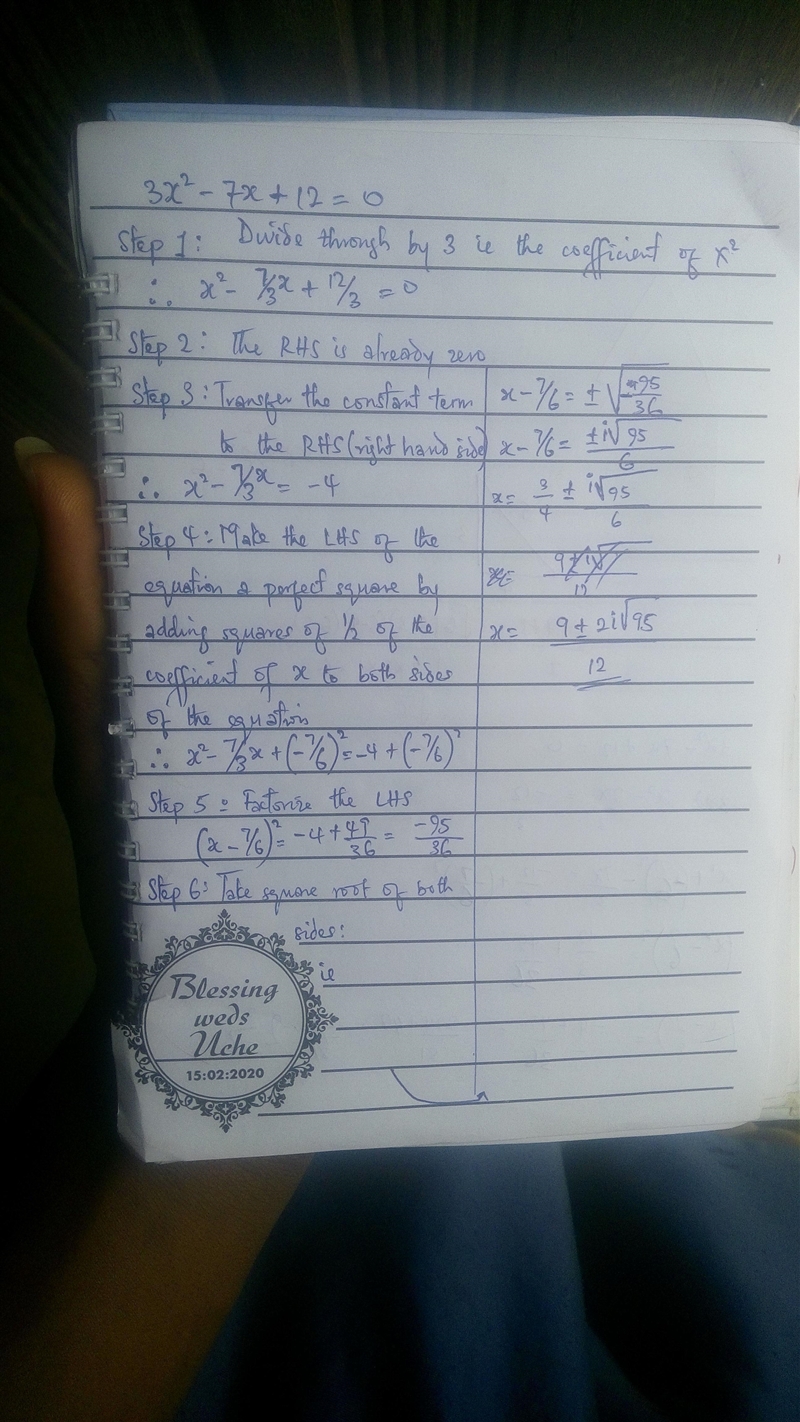 3x² - 7x + 12 = 0
Step 1: Divide through by 3 ie the coefficient of x²
∴ x² - 7/3x + 12/3 = 0
Step 2: The RHS is already zero
Step 3: Transfer the constant term
to the RHS (right hand side)
∴ x² - 7/3x = -4
Step 4: Make the LHS of the
equation a perfect square by
adding squares of ½ of the
coefficient of x to both sides
of the equation
∴ x² - 7/3x + (-7/6)² = -4 + (-7/6)²
Step 5: Factorize the LHS
(x - 7/6)² = -4 + 49/36 = -95/36
Step 6: Take square root of both
sides:
ie
x - 7/6 = ± √-95/36
x - 7/6 = ±i√95/6
x = 3/4 ± i√95/6
x = 9 ± 2i√95/12
Blessing
weds
Uche
15:02:2020